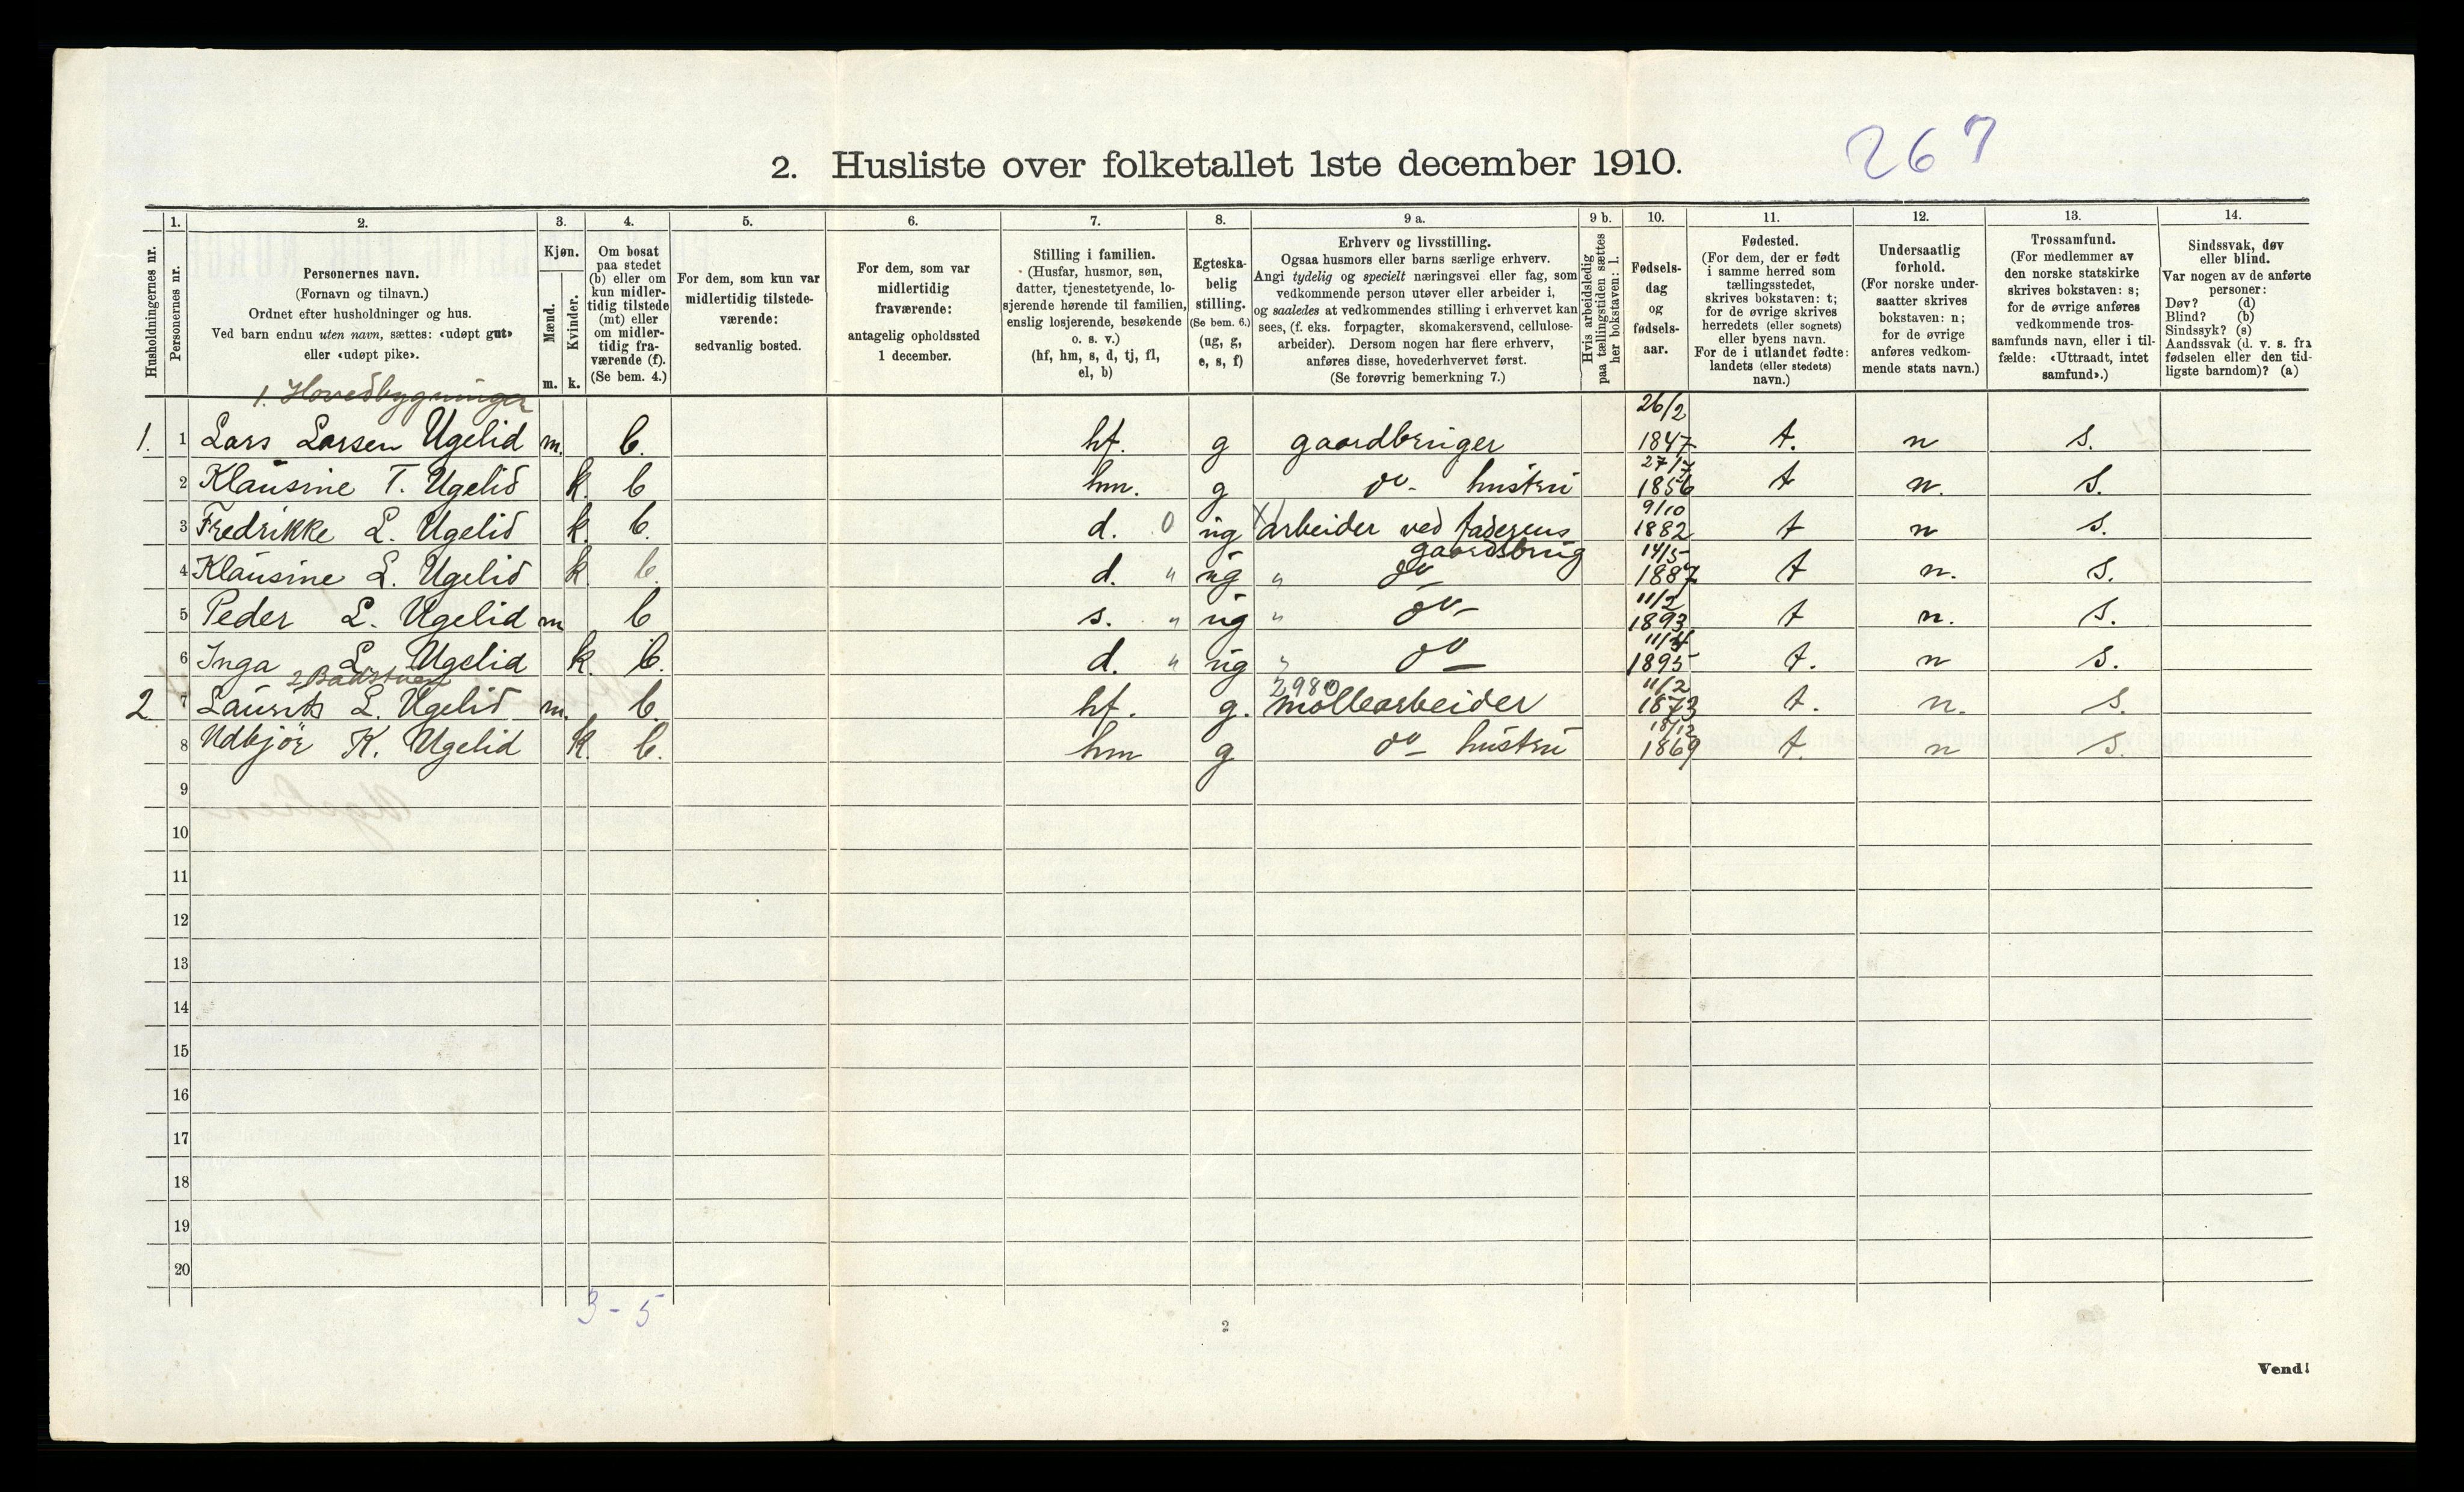 267
2. Husliste over folketallet 1ste december 1910.
Husholdningernes nr.
1.
Personernes nr.
2.
Personernes navn.
(Fornavn og tilnavn.)
Ordnet efter husholdninger og hus.
Ved barn endnu uten navn, sættes: «udøpt gut»
eller «udøpt pike».
3.
Kjøn.
Mænd.
m.
Kvinder.
k.
4.
Om bosat
paa stedet
(b) eller om
kun midler-
tidig tilstede
(mt) eller
om midler-
tidig fra-
værende (f).
(Se bem. 4.)
5.
For dem, som kun var
midlertidig tilstede-
værende:
sedvanlig bosted.
6.
For dem, som var
midlertidig
fraværende:
antagelig opholdssted
1 december.
7.
Stilling i familien.
(Husfar, husmor, søn,
datter, tjenestetyende, lo-
sjerende hørende til familien,
enslig losjerende, besøkende
o. s. v.)
(hf, hm, s, d, tj, fl,
el, b)
8.
Egteska-
belig
stilling.
(Se bem. 6.)
(ug, g,
e, s, f)
9 a.
Erhverv og livsstilling.
Ogsaa husmors eller barns særlige erhverv.
Angi tydelig og specielt næringsvei eller fag, som
vedkommende person utøver eller arbeider i,
og saaledes at vedkommendes stilling i erhvervet kan
sees, (f. eks. forpagter, skomakersvend, cellulose-
arbeider). Dersom nogen har flere erhverv,
anføres disse, hovederhvervet først.
(Se forøvrig bemerkning 7.)
9 b.
Hvis arbeidsledig
paa tællingstiden sættes
her bokstaven: l.
10.
Fødsels-
dag
og
fødsels-
aar.
11.
Fødested.
(For dem, der er født
i samme herred som
tællingsstedet,
skrives bokstaven: t;
for de øvrige skrives
herredets (eller sognets)
eller byens navn.
For de i utlandet fødte:
landets (eller stedets)
navn.)
12.
Undersaatlig
forhold.
(For norske under-
saatter skrives
bokstaven: n;
for de øvrige
anføres vedkom-
mende stats navn.)
13.
Trossamfund.
(For medlemmer av
den norske statskirke
skrives bokstaven: s;
for de øvrige anføres
vedkommende tros-
samfunds navn, eller i til-
fælde: «Uttraadt, intet
samfund».)
14.
Sindssvak, døv
eller blind.
Var nogen av de anførte
personer:
Døv? (d)
Blind? (b)
Sindssyk? (s)
Aandssvak (d. v. s. fra
fødselen eller den tid-
ligste barndom)? (a)
1. Hovedbygninger
1. 1 Lars Larsen Ugelid m. b. hf. g gaardbruger 26/2 1847 t. n s.
2 Klausine T. Ugelid k. b hm. g do - hustru 27/7 1856 t n. s.
3 Fredrikke L. Ugelid k. b. d. 0 ug X arbeider ved faderens gaardsbrug 9/10 1882 t n s.
4 Klausine L. Ugelid k. b. d. " ug " do 14/5 1887 t n. s.
5 Peder L. Ugelid m b s. " ug " do - 11/2 1893 t n. s.
6 Inga L. Ugelid k b. d. " ug " do 1895 t. n s.
2 Badstuen
2 7 Laurits L. Ugelid m. b. hf. g. 2980 møllearbeider 11/2 1873 t. n. s.
8 Udbjør K. Ugelid k. b. hm g do - hustru 18/12 1869 t. n s.
9
10
11
12
13
14
15
16
17
18
19
20
3 - 5
2
Vend!